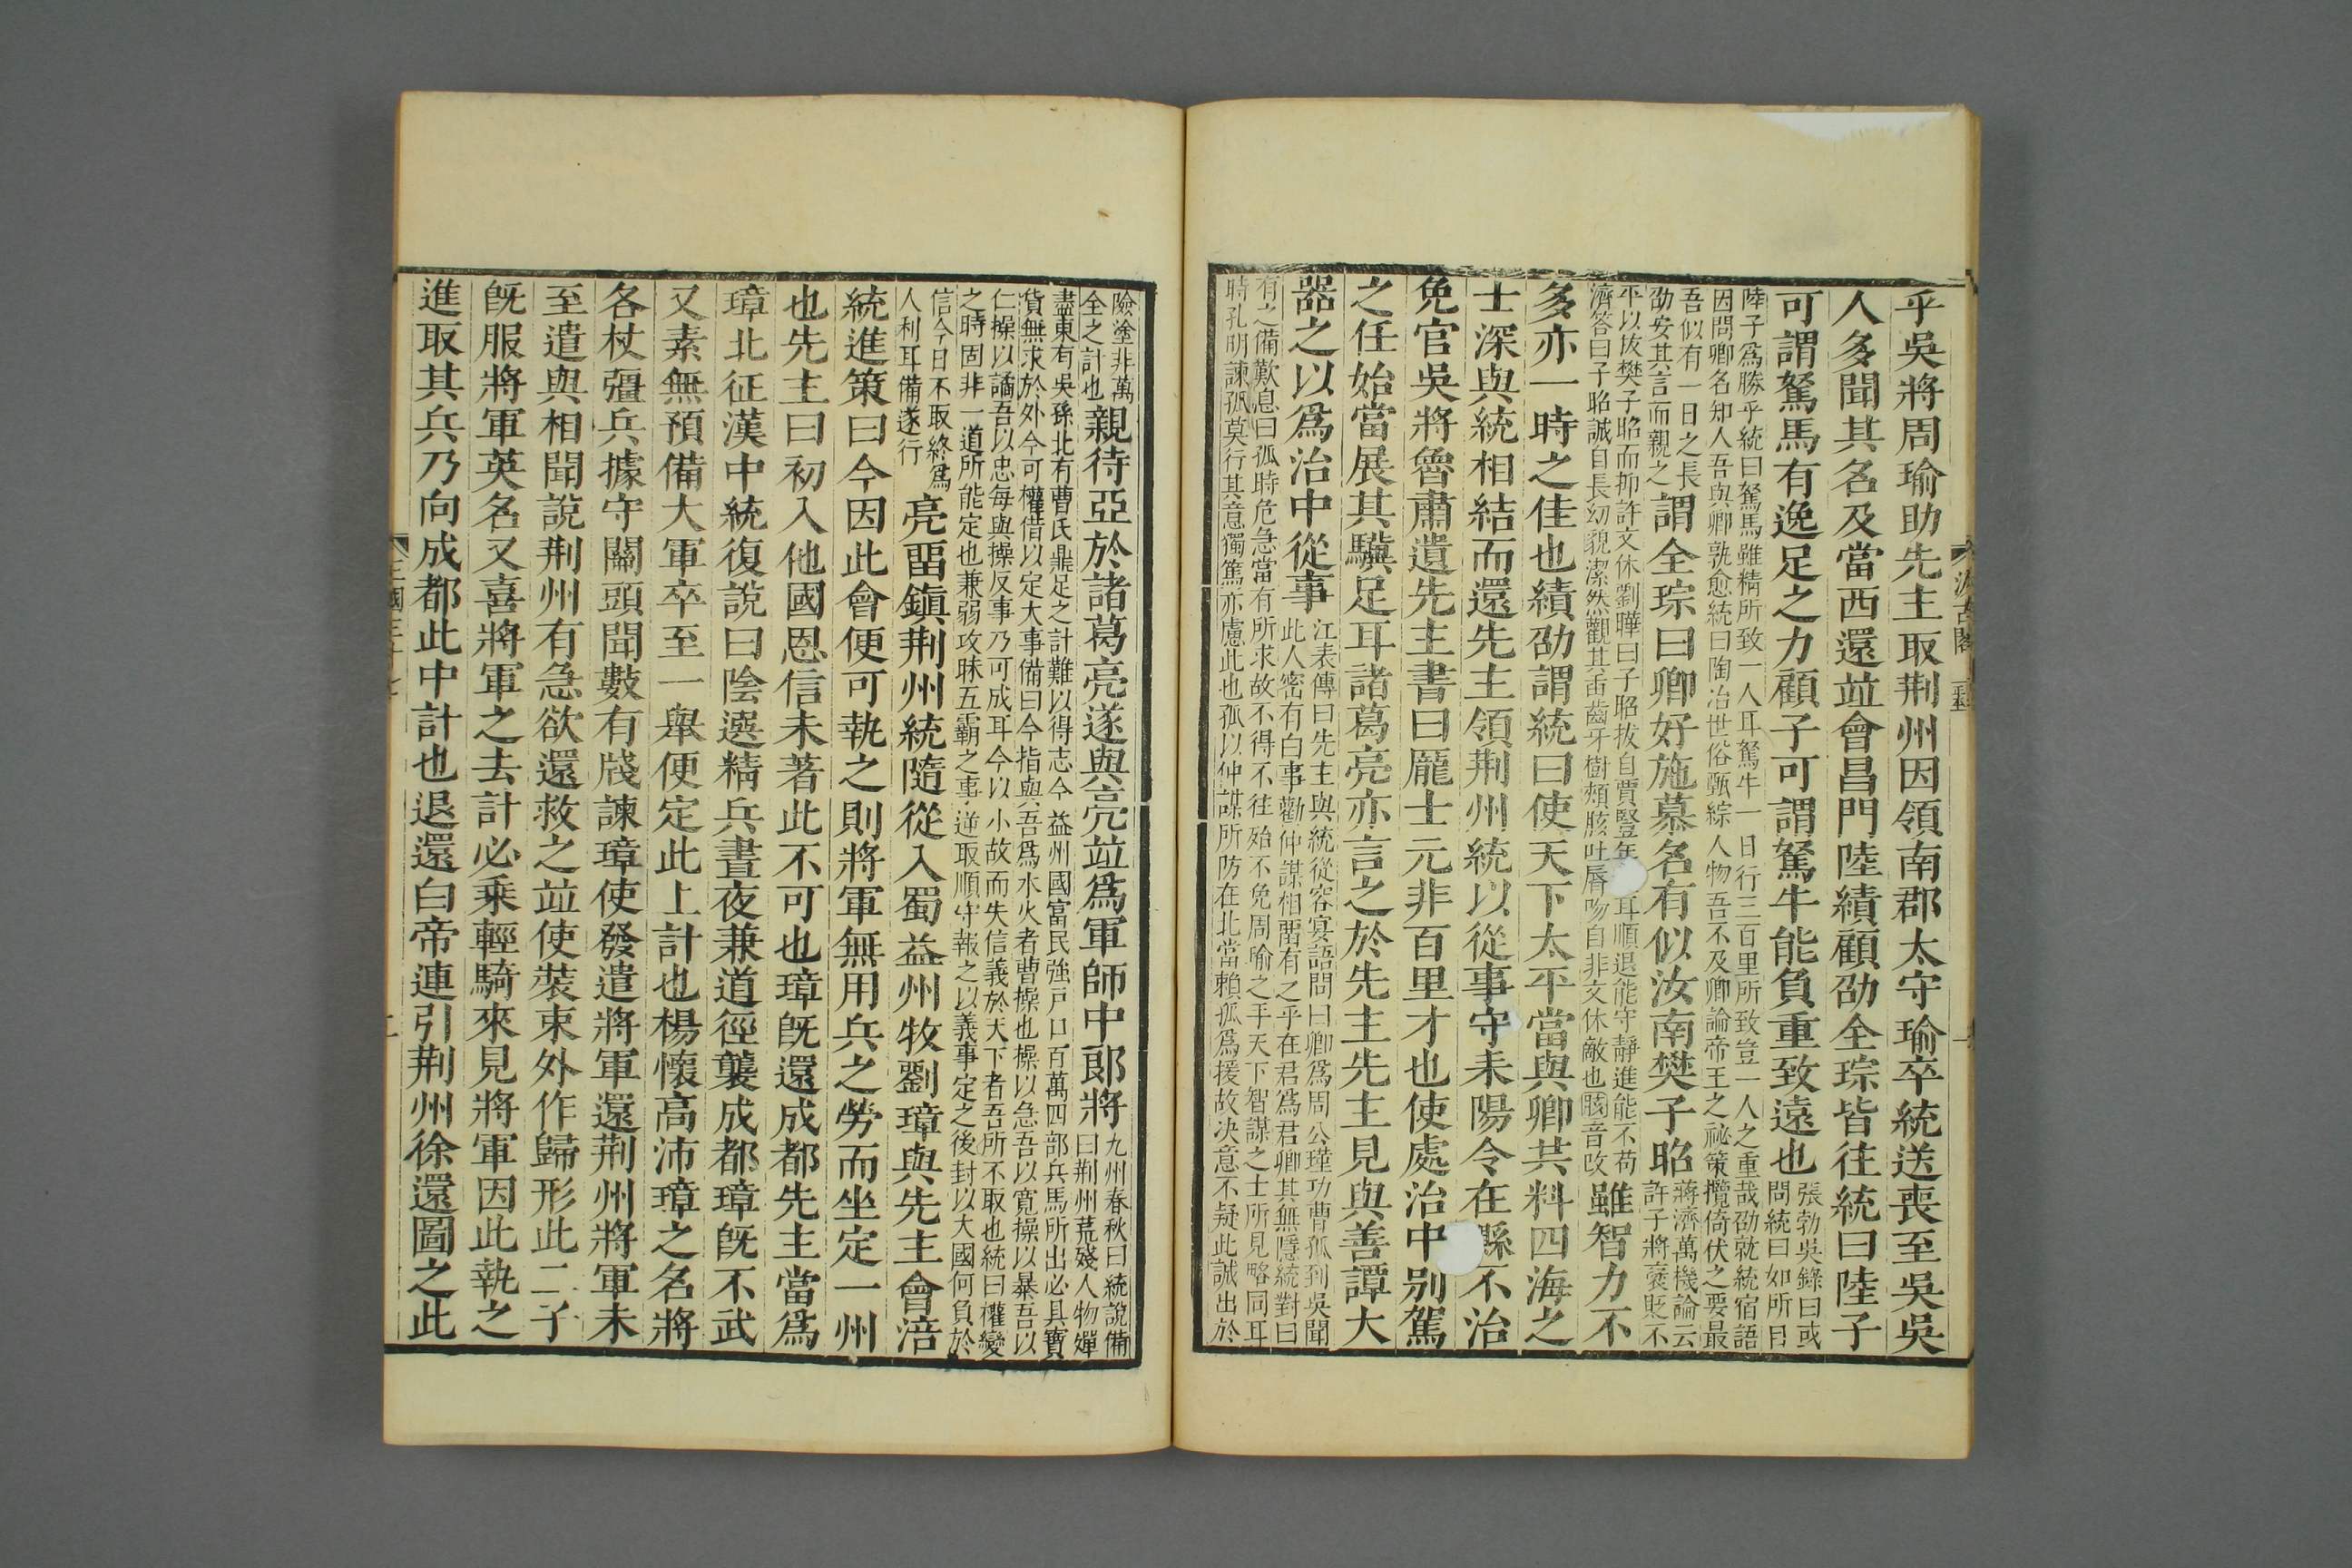 乎吳將周瑜助先主取荆州因領南郡太守瑜卒統送喪至吳吳
人多聞其名及當西還竝會昌門陸績顧劭全琮皆往統曰陸子
可謂駑馬有逸足之力顧子可謂駑牛能負重致遠也張勃吳錄曰或
問統曰如所目
陸子爲勝乎統曰駑馬雖精所致一人耳駑牛一日行三百里所致豈一人之重哉劭就統宿語
因問卿名知人吾與卿孰愈統曰陶冶世俗甄綜人物吾不及卿論帝王之祕策攬倚伏之要最
吾似有一日之長
劭安其言而親之
謂全琮曰卿好施慕名有似汝南樊子昭
蔣濟萬機論云
許子將褒貶不
平以拔樊子昭而抑許文休劉曄曰子昭拔自賈豎年耳順退能守靜進能不苟
濟答曰子昭誠自長幼貌潔然觀其臿齒牙樹頰胲吐脣吻自非文休敵也胲音改
雖智力不
多亦一時之佳也績劭謂統曰使天下太平當與卿共料四海之
士深與統相結而還先主領荆州統以從事守耒陽令在縣不治
免官吳將魯肅遺先主書曰龐士元非百里才也使處治中别駕
之任始當展其驥足耳諸葛亮亦言之於先主先主見與善譚大
器之以爲治中從事
江表傳曰先主與統從容宴語問曰卿爲周公瑾功曹孤到吳聞
此人密有白事勸仲謀相畱有之乎在君爲君卿其無隱統對曰
有之備歎息曰孤時危急當有所求故不得不往殆不免周瑜之手天下智謀之士所見略同耳
時孔明諫孤莫行其意獨篤亦慮此也孤以仲謀所防在北當賴孤爲援故決意不疑此誠出於
險塗非萬
全之計也
親待亞於諸葛亮遂與亮竝爲軍師中郎將
九州春秋曰統說備
曰荆州荒殘人物殫
盡東有吳孫北有曹氏鼎足之計難以得志今益州國富民強戸口百萬四部兵馬所出必具寶
貨無求於外今可權借以定大事備曰今指與吾爲水火者曹操也操以急吾以寬操以暴吾以
仁操以譎吾以忠每與操反事乃可成耳今以小故而失信義於天下者吾所不取也統曰權變
之時固非一道所能定也兼弱攻昧五霸之事逆取順守報之以義事定之後封以大國何負於
信今日不取終爲
人利耳備遂行
亮畱鎮荆州統隨從入蜀益州牧劉璋與先主會涪
統進策曰今因此會便可執之則將軍無用兵之勞而坐定一州
也先主曰初入他國恩信未著此不可也璋旣還成都先主當爲
璋北征漢中統復說曰陰選精兵晝夜兼道徑襲成都璋旣不武
又素無預備大軍卒至一舉便定此上計也楊懷高沛璋之名將
各杖彊兵據守關頭聞數有牋諫璋使發遣將軍還荆州將軍未
至遣與相聞說荆州有急欲還救之竝使裝束外作歸形此二子
旣服將軍英名又喜將軍之去計必乘輕騎來見將軍因此執之
進取其兵乃向成都此中計也退還白帝連引荆州徐還圖之此